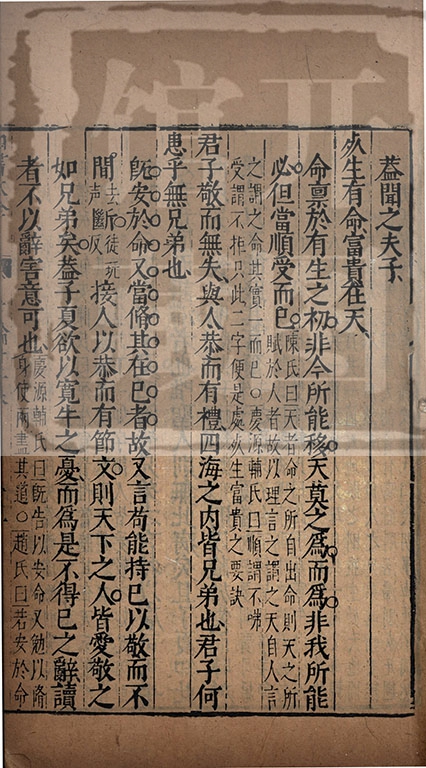 蓋聞之夫子
死生有命富貴在天
命禀於有生之初非今所能移天莫之爲而爲非我所能
必但當順受而已
陳氏曰天者命之所自出命則天之所
賦於人者故以理言之謂之天自人言
之謂之命其實一而已○慶源輔氏曰順謂不咈
受謂不拒只此二字便是處死生富貴之要訣
君子敬而無失與人恭而有禮四海之内皆兄弟也君子何
患乎無兄弟也
旣安於命又當脩其在已者故又言苟能持已以敬而不
間
去
聲
斷
徒玩
反
接人以恭而有節文則天下之人皆愛敬之
如兄弟矣蓋子夏欲以寛牛之憂而爲是不得已之辭讀
者不以辭害意可也
慶源輔氏曰旣告以安命又勉以脩
身使兩盡其道○趙氏曰若安於命